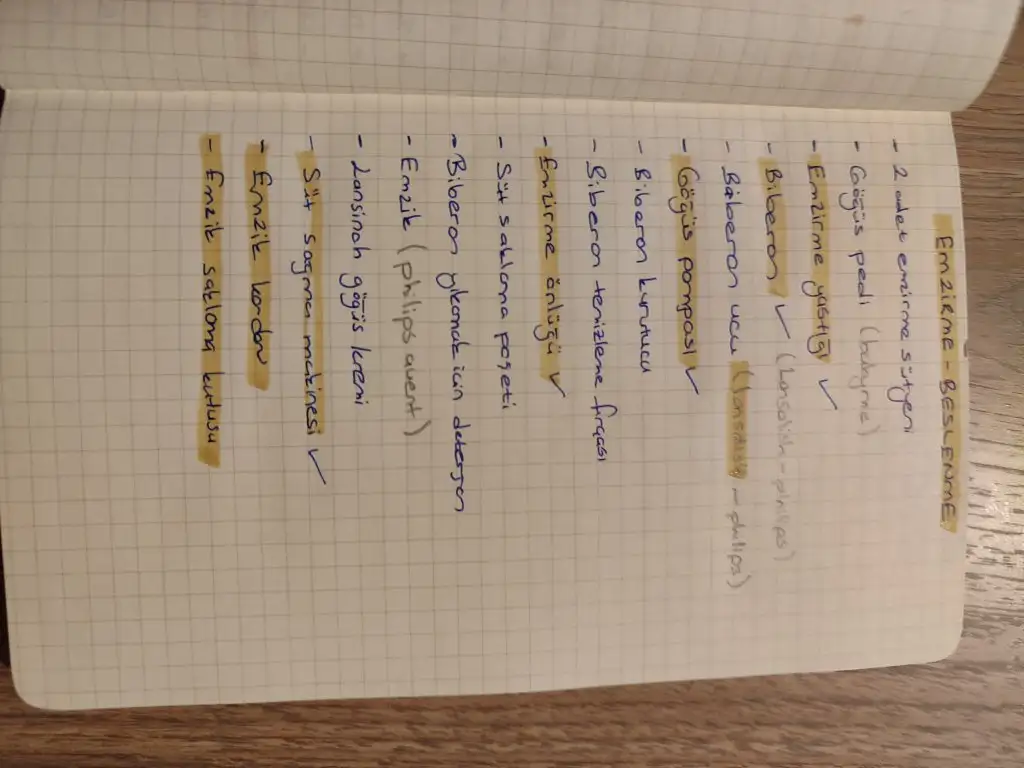 EMZİRME - BESLENME
- 2 adet emzirme sütyeni
- Göğüs pedi (babyme)
- Emzirme yastığı ✓
- Biberon ✓ (Lansinoh - philips)
- Biberon ucu (lansinoh - philips)
- Göğüs pompası ✓
- Biberon kurutucu
- Biberon temizleme fırçası
- Emzirme önlüğü ✓
- Süt saklama poşeti
- Biberon yıkamak için deterjan
- Emzik (philips avent)
- Lansinoh göğüs kremi
- Süt sağma makinesi ✓
- Emzik kordon
- Emzik saklama kutusu